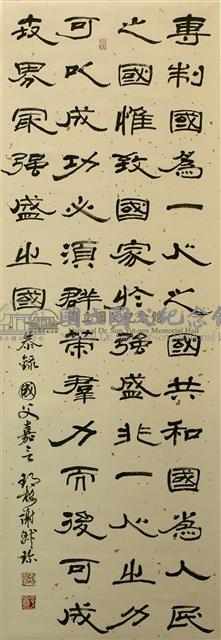 專制國為一人之國共和國為人民
之國惟致國家於强盛非一人之力
可以成功必須群策羣力而後可成
世界最强盛之國
恭錄國父嘉言
謝
國立國父紀念館
National Dr. Sun Yat-sen Memorial Hall